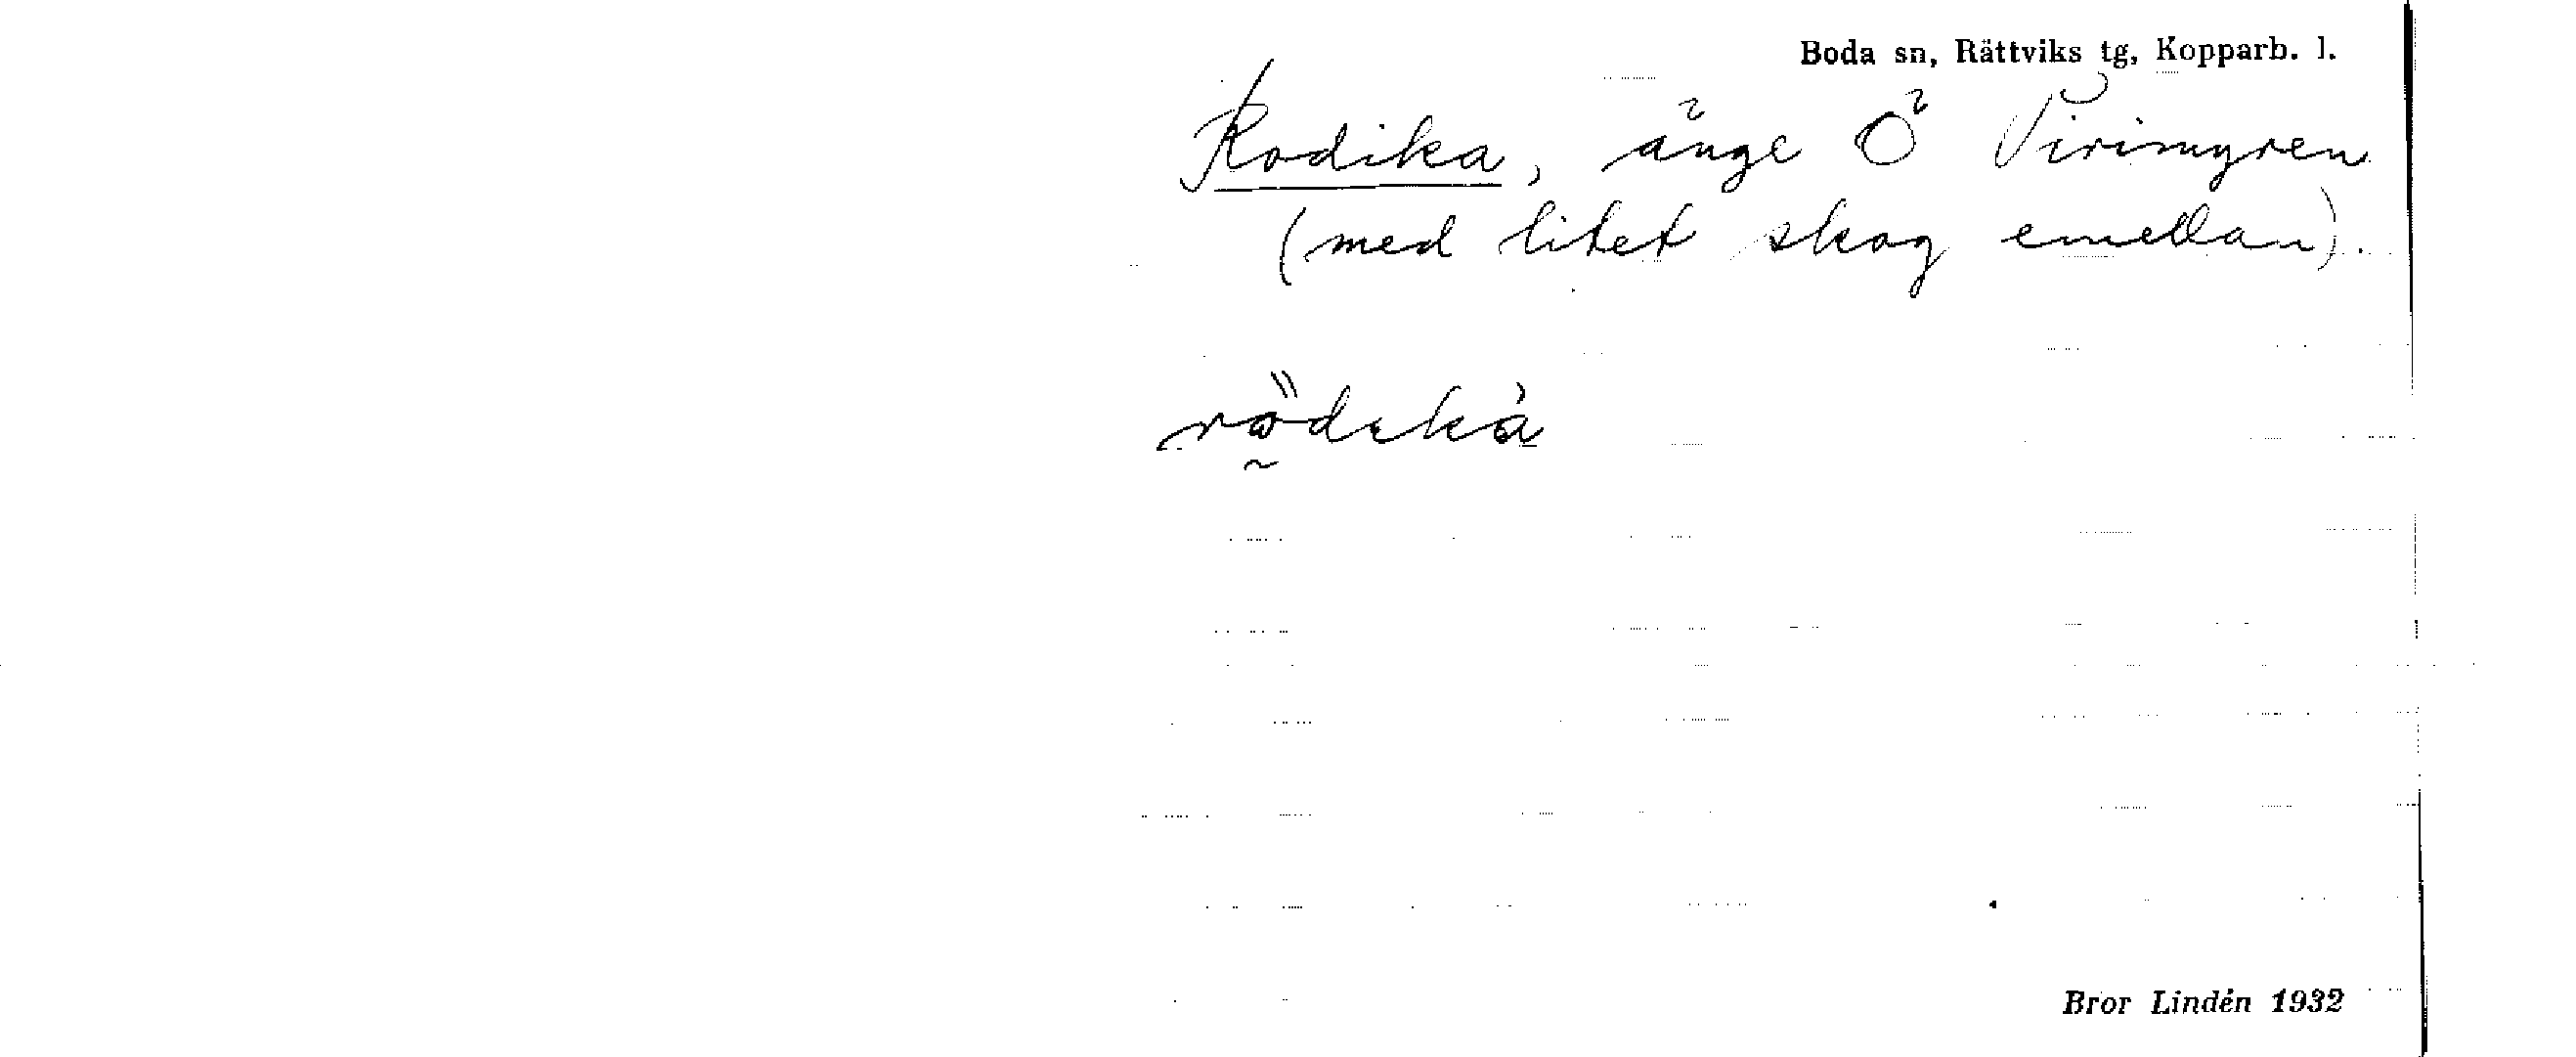 Boda sn, Rättviks tg, Kopparb. l.
Rodika, änge Ö Virimyren
(med litet skog emellan).
Bror Lindén 1932